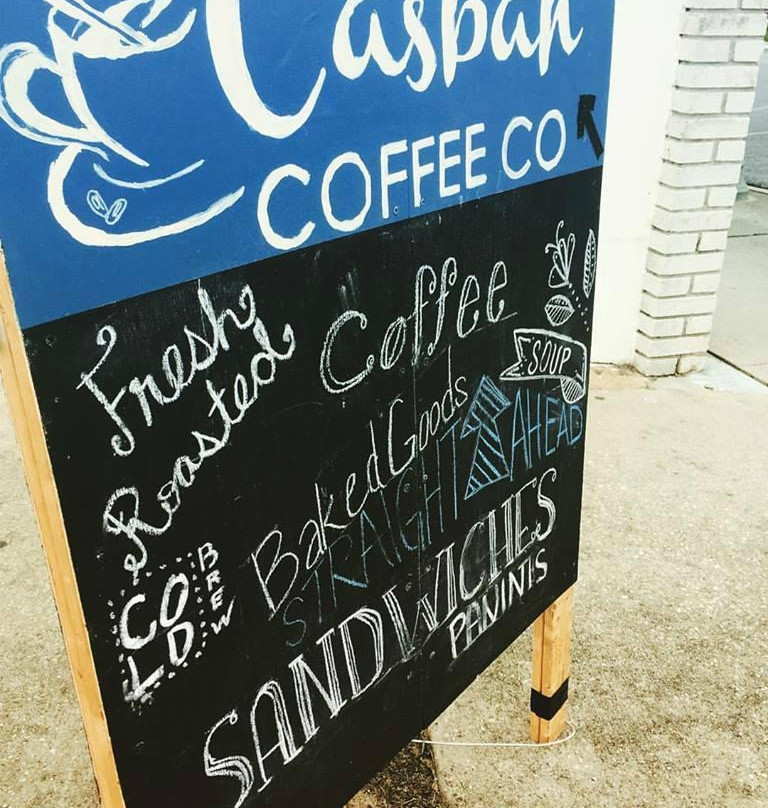 Casbah
COFFEE CO
Fresh
Roasted
Coffee
SOUP
Baked Goods
STRAIGHT AHEAD
COLD
BREW
SANDWICHES
PANINIS